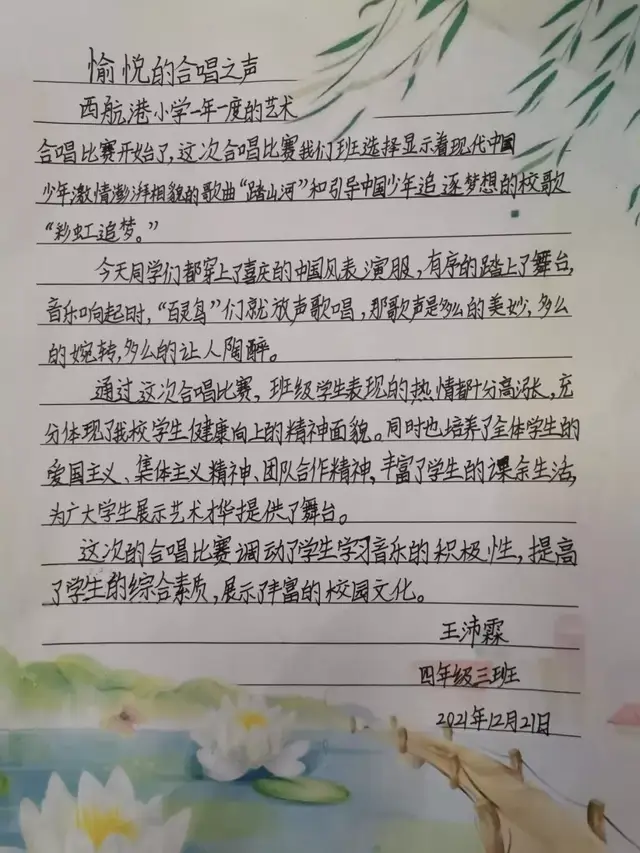 愉悦的合唱之声
西航港小学一年一度的艺术
合唱比赛开始了，这次合唱比赛我们班选择显示着现代中国
少年激情澎湃相貌的歌曲“踏山河”和引导中国少年追逐梦想的校歌
“彩虹追梦。”
今天同学们都穿上了喜庆的中国风表演服，有序的踏上了舞台，
音乐响起时，“百灵鸟”们就放声歌唱，那歌声是多么的美妙，多么
的婉转，多么的让人陶醉。
通过这次合唱比赛，班级学生表现的热情都十分高涨，充
分体现了我校学生健康向上的精神面貌。同时也培养了全体学生的
爱国主义、集体主义精神、团队合作精神，丰富了学生的课余生活，
为广大学生展示艺术才华提供了舞台。
这次的合唱比赛调动了学生学习音乐的积极性，提高
了学生的综合素质，展示了丰富的校园文化。
王沛霖
四年级三班
2021年12月21日